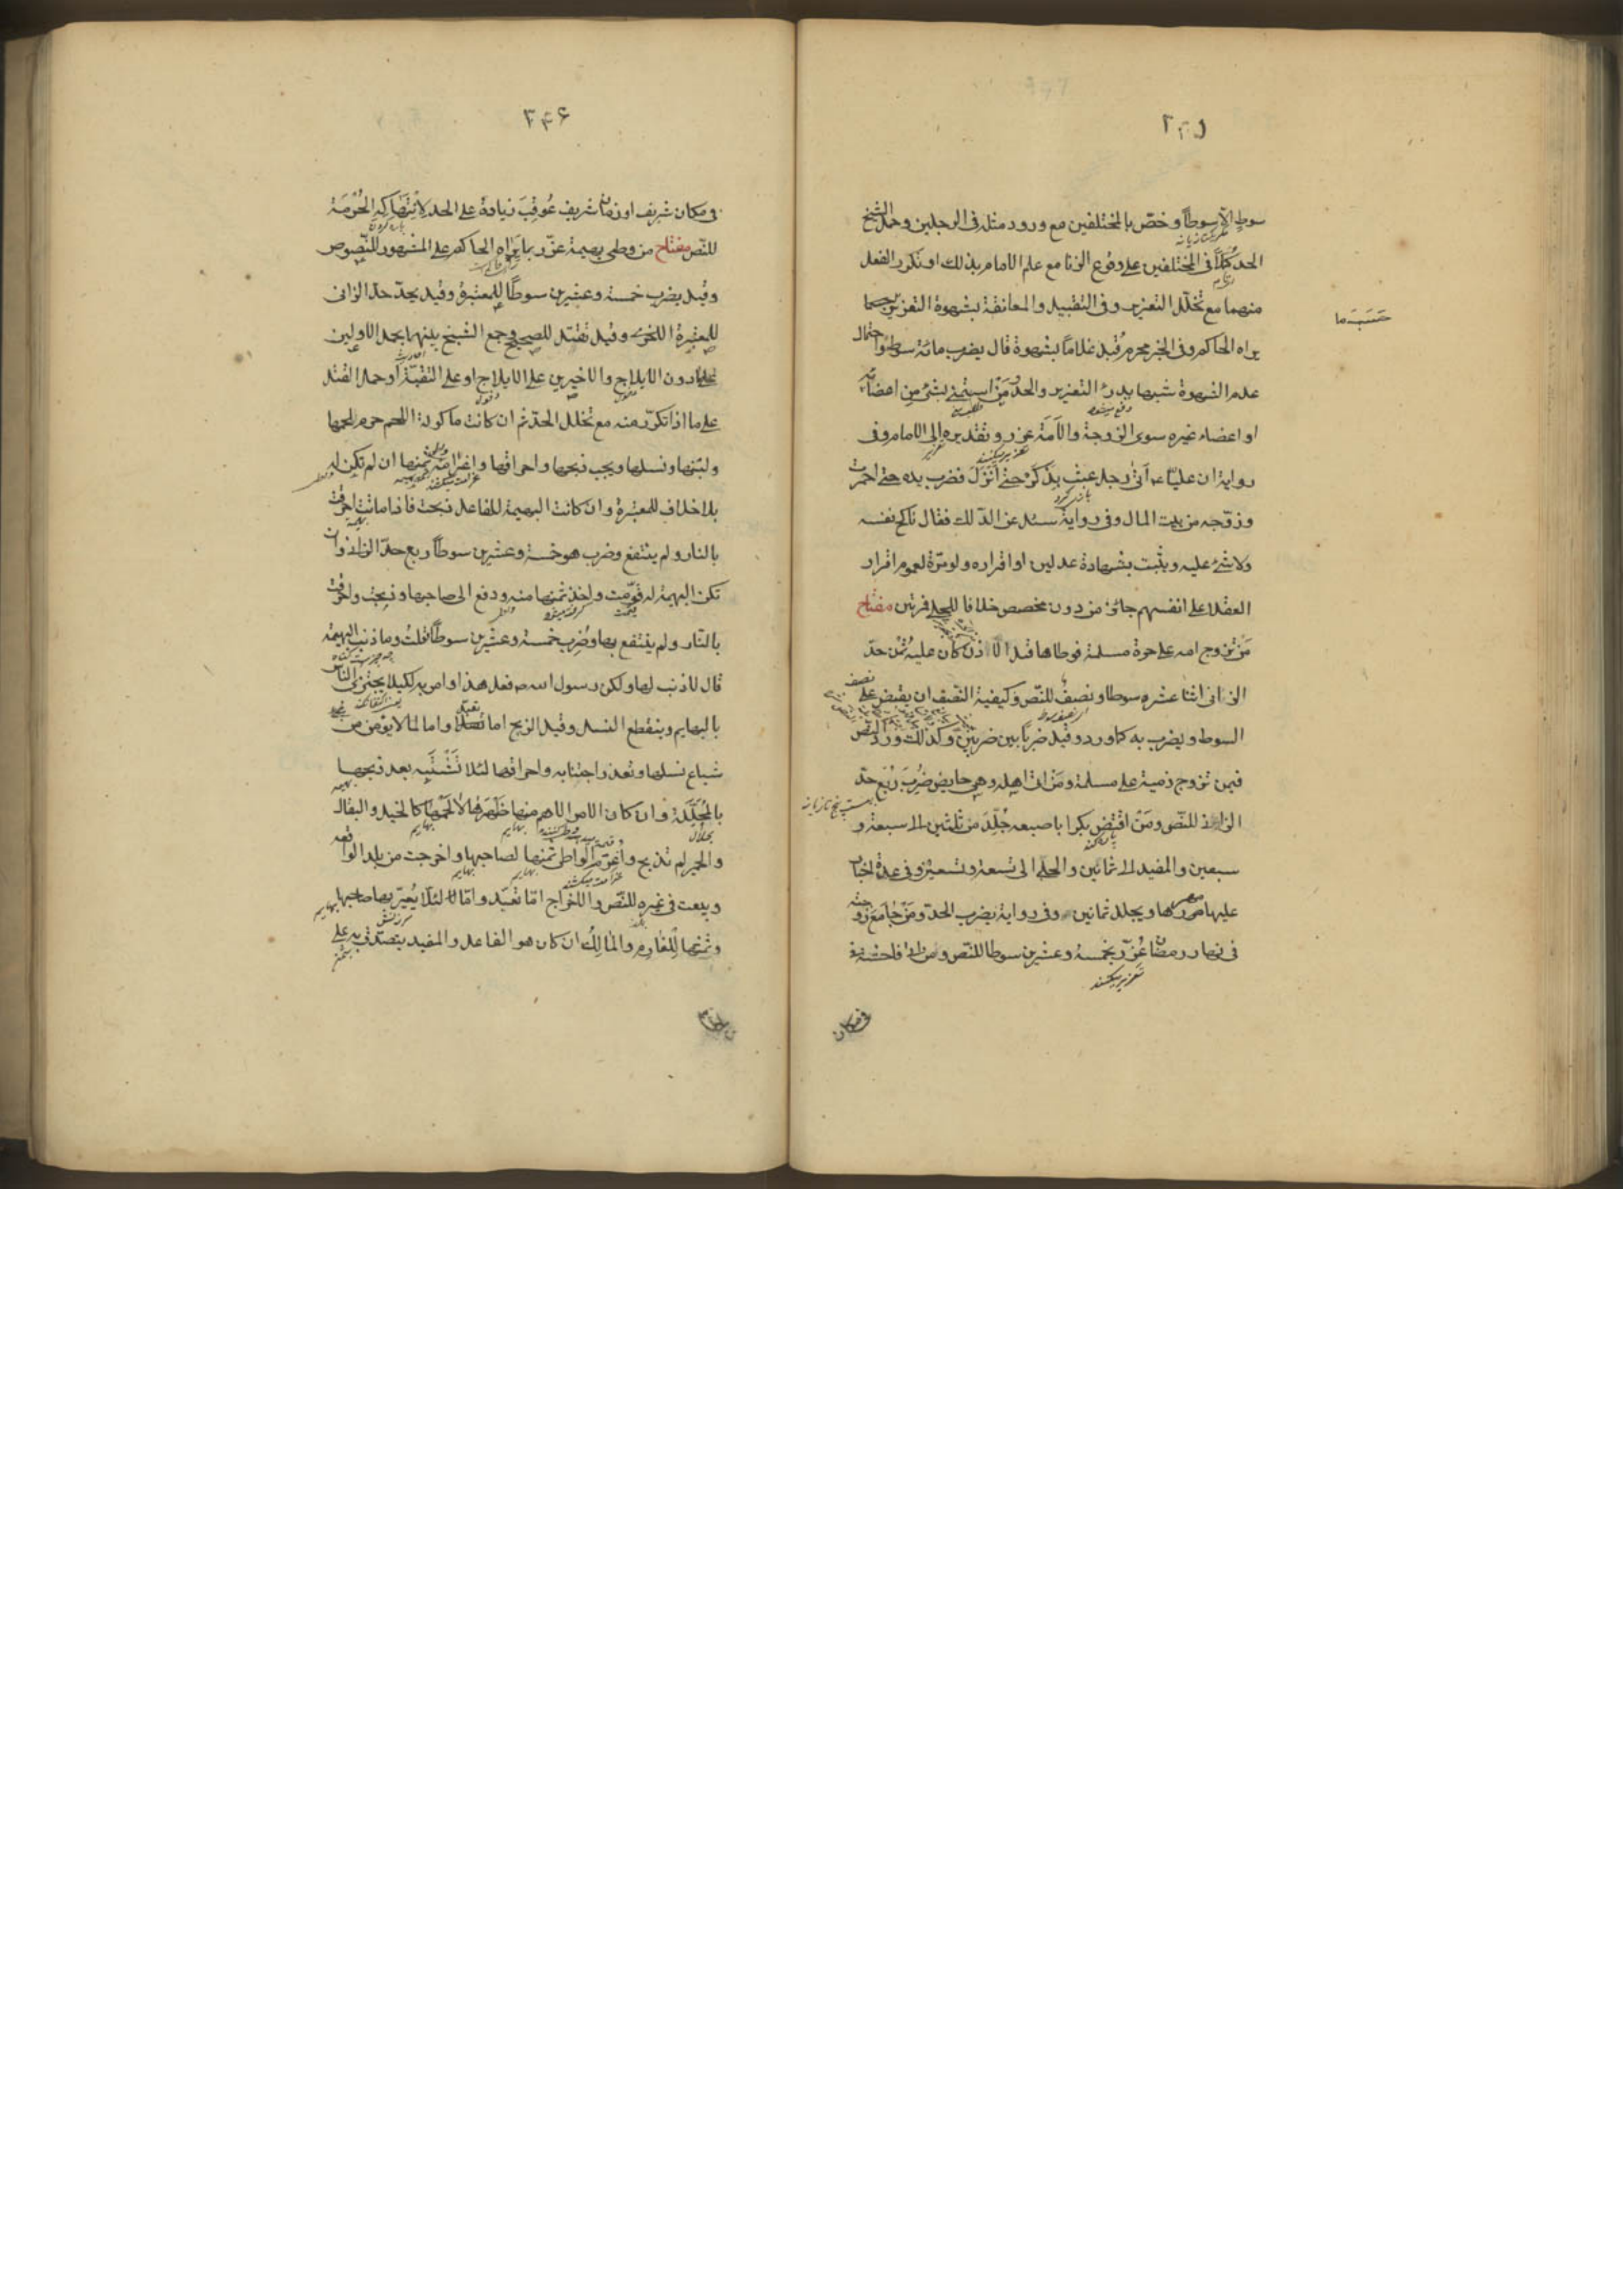 ۳۴۵
سوط الا سوطاً وخصّ بالمختلفين مع ورود مثله فى الرجلين وحمل الشيخ
الحد كملاً فى المختلفين على وقوع الزنا مع علم الامام بذلك او تكرر الفعل
منهما مع تخلّل التعزير وفى التقبيل والمعانقة بشهوة التعزير حسبما
يراه الحاكم وفى الخبر محرم قبل غلاماً بشهوة قال يضرب مائة سوط واحتمال
عدم الشهوة شبهها يدرئ التعزير والحد ومن استمنى بشئ من اعضائه
او اعضاء غيره سوى الزوجة والأمة عزر وتقديره الى الامام وفى
رواية ان عليّا ع أتى رجل عبث بذكره حتى أنزل فضرب يده حتى احمرت
وزوّجه من بيت المال وفى رواية سئل عن الدّلك فقال ناكح نفسه
ولا شئ عليه ويثبت بشهادة عدلين او اقراره ولو مرّة لعموم اقرار
العقلاء على انفسهم جائز من دون مخصص خلافا للحلى فمرتين مفتاح
من تزوج امه على حرة مسلمة فوطاها قبل الاذن كان عليه ثمن حدّ
الزانى اثنا عشره سوطا ونصف للنّص وكيفية النّصف ان يقبض على نصف
السوط ويضرب به كما ورد وقيل ضرباً بين ضربين وكذلك ورد النّص
فيمن تزوج ذمية على مسلمة ومن اتى اهله وهى حايض ضُرب رُبع حدّ
الزانى للنّص ومن افتض بكرا باصبعه جُلد من ثلثين الى سبعة و
سبعين والمفيد الى ثمانين والحلى الى تسعة وتسعين وفى عدة اخبار
عليها مهرها ويجلد ثمانين وفى رواية يضرب الحد ومن جامع زوجته
فى نهار رمضان عُزّر بخمسة وعشرين سوطا للنّص ومن زنى فاحشة
فى مكان
حَسَبَ ما
۳۴۶
فى مكان شريف او زمان شريف عُوقب زيادة على الحد لانتهاكه الحُرمة
للنّص مفتاح من وطى بهيمة عزّر بما يراه الحاكم على المشهور للنّصوص
وقيل يضرب خمسة وعشرين سوطاً للمعتبرة وقيل يحدّ حدّ الزانى
للمعتبرة الاخرى وقيل تقتل للصحيح وجمع الشيخ بينها بحمل الاولين
على ما دون الايلاج والاخيرين على الايلاج او على التقيّة او حمل القتل
على ما اذا تكرّر منه مع تخلل الحدّ ثم ان كانت ماكولة اللحم حرم لحمها
ولبنها ونسلها ويجب ذبحها واحراقها واغرامه ثمنها ان لم تكن له
بلا خلاف للمعتبرة وان كانت البهيمة للفاعل ذبحت فاذا ماتت احرقت
بالنار ولم ينتفع وضرب هو خمسة وعشرين سوطاً ربع حدّ الزانى وان لم
تكن البهيمة له قوّمت واخذ ثمنها منه ودفع الى صاحبها وذبحت واحرقت
بالنّار ولم ينتفع بها وضُرب خمسة وعشرين سوطاً فقلت وما ذنب البهيمة
قال لا ذنب لها ولكن رسول الله ص فعل هذا وامر به لكيلا يجتزئ الناس
بالبهايم وينقطع النسل وقيل الذبح اما تعبّداً واما لما لا يؤمن من
شياع نسلها وتعذر اجتنابه واحراقها لئلا تشتبه بعد ذبحها
بالمحلّلة وان كان الامر الاهم منها ظهرها لا لحمها كالخيل والبغال
والحمير لم تذبح واغرم الواطى ثمنها لصاحبها واخرجت من بلد الواقعه
وبيعت فى غيره للنّص والاخراج امّا تعبّد وامّا لئلّا يُعيّر بها صاحبها
وثمنها للغارم والمالك ان كان هو الفاعل والمفيد يتصدّق به على